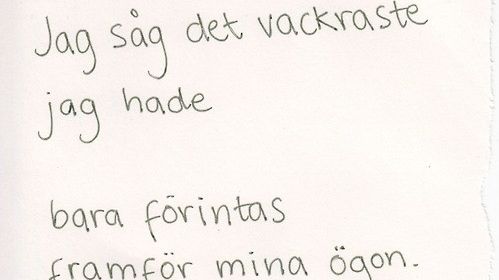 Jag såg det vackraste
jag hade
bara förintas
framför mina ögon.